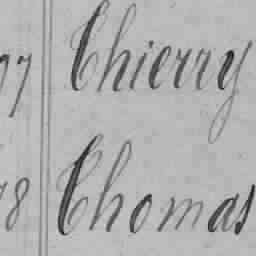 77 Thierry
78 Thomas